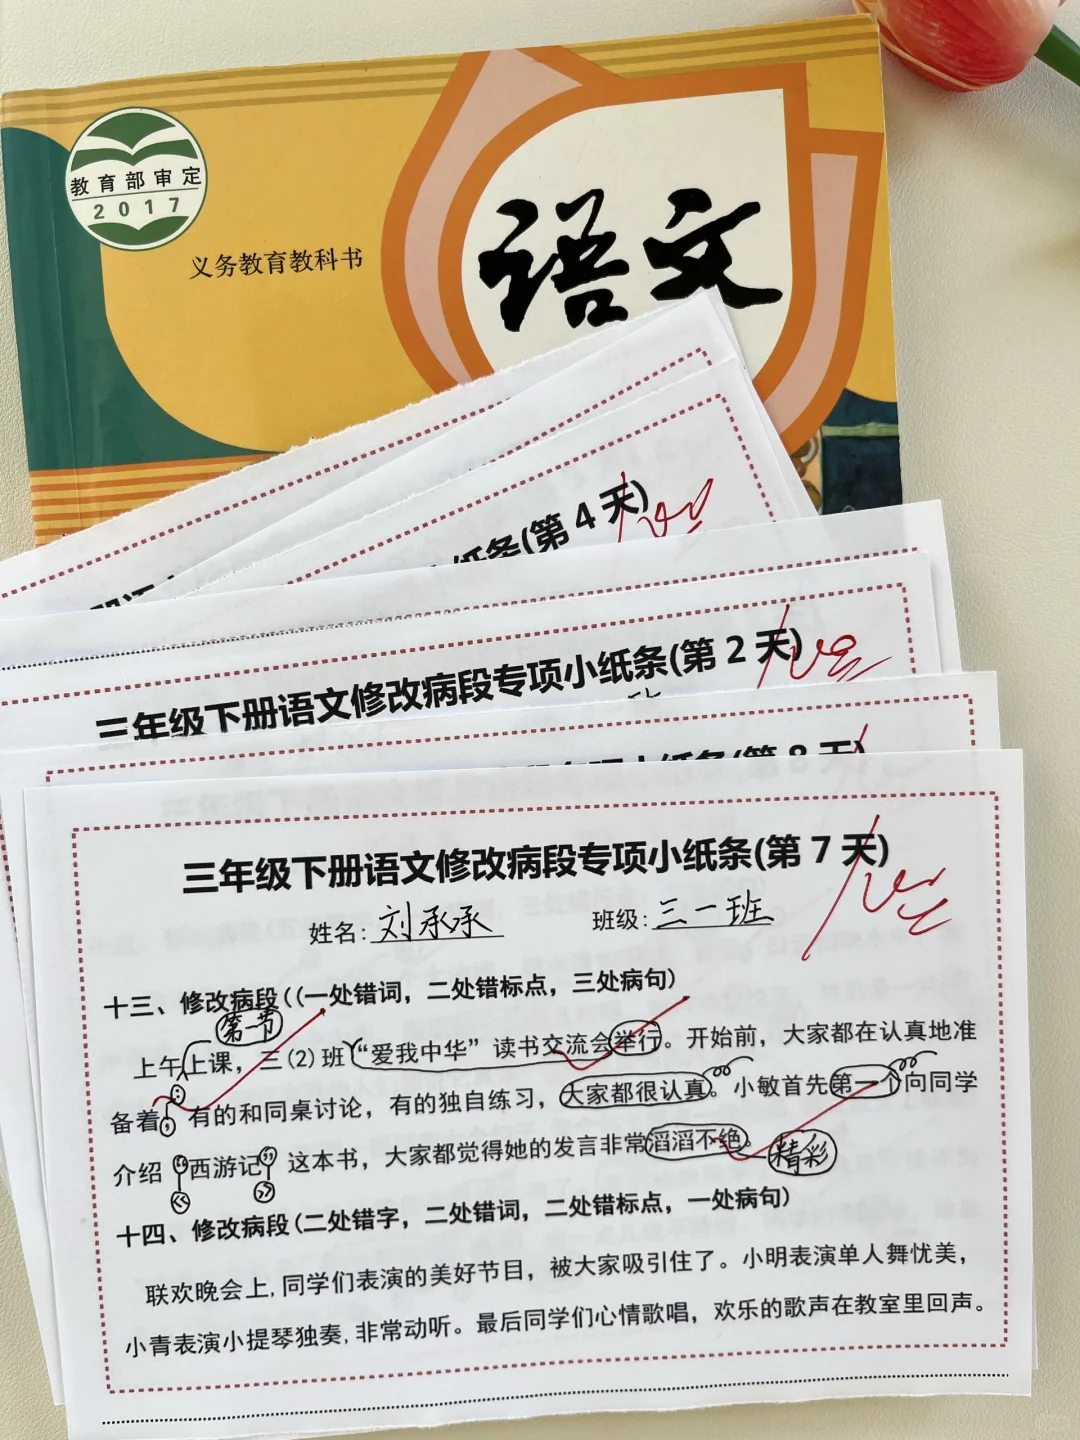 教育部审定
2017
义务教育教科书
语文
纸条(第4天)
三年级下册语文修改病段专项小纸条(第2天)
小纸条(第8天)
三年级下册语文修改病段专项小纸条(第7天)
姓名:刘承承 班级:三一班
十三、修改病段((一处错词,二处错标点,三处病句)
第一节
上午上课,三(2)班“爱我中华”读书交流会举行。开始前,大家都在认真地准
备着: 有的和同桌讨论,有的独自练习,大家都很认真。小敏首先第一个向同学
介绍“西游记”这本书,大家都觉得她的发言非常滔滔不绝。
《 》 精彩
十四、修改病段(二处错字,二处错词,二处错标点,一处病句)
联欢晚会上,同学们表演的美好节目,被大家吸引住了。小明表演单人舞忧美,
小青表演小提琴独奏,非常动听。最后同学们心情歌唱,欢乐的歌声在教室里回声。